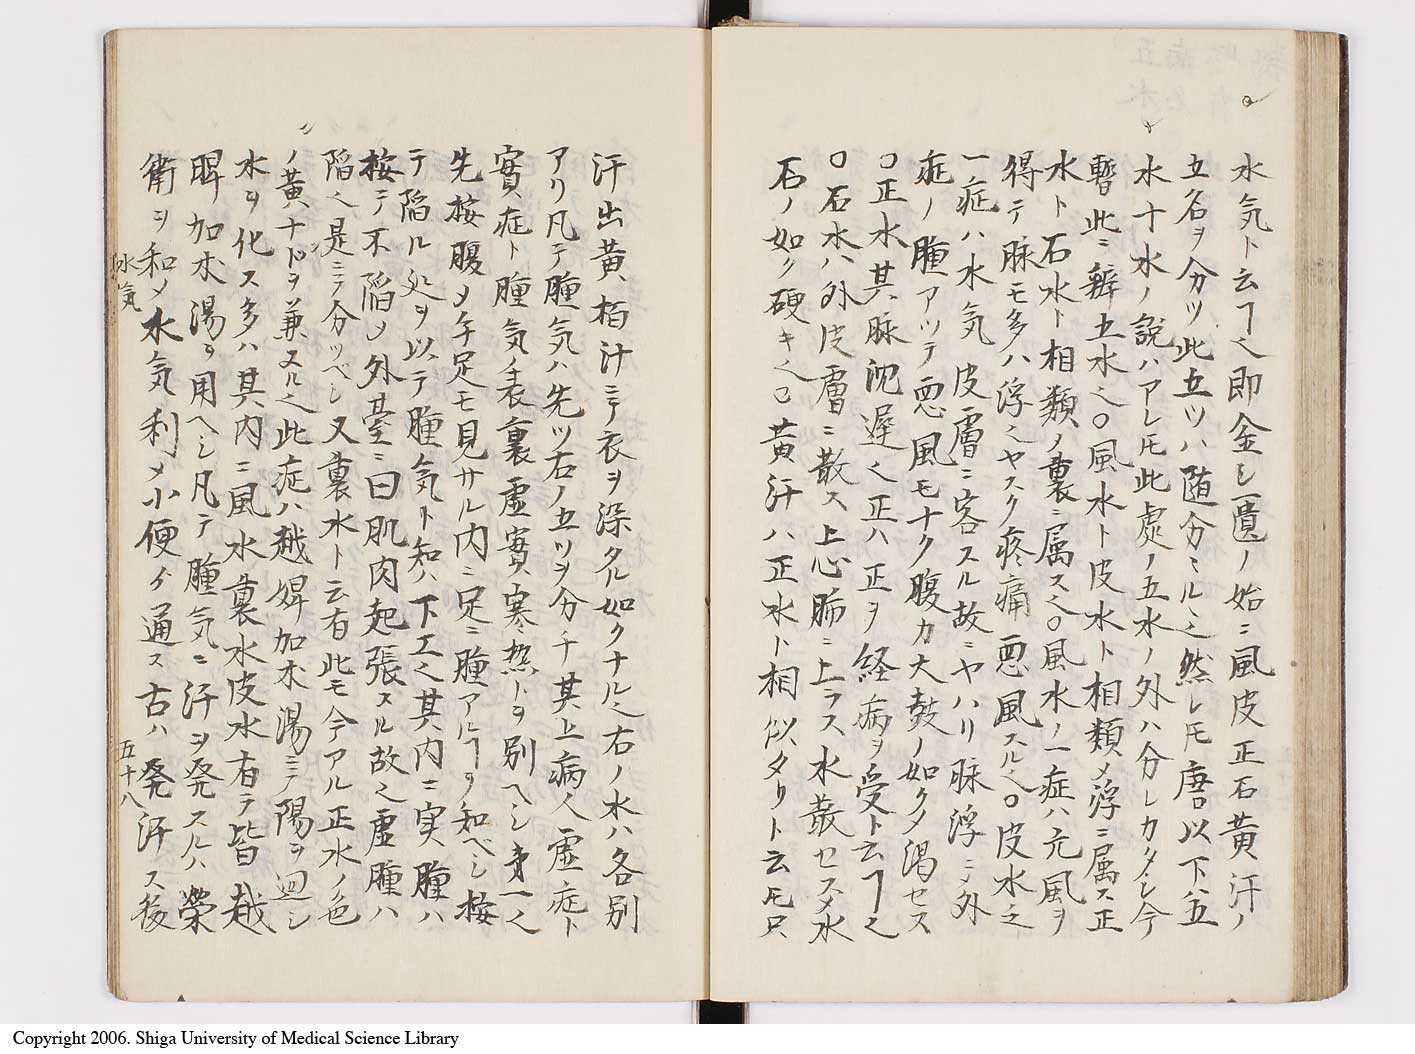 水気ト云ヿ之即金匱ノ始ニ風皮正石黄汗ノ
五名ヲ分ツ此五ツハ随分ミル之然レ𪜈唐以下ハ五
水十水ノ説ハアレ𪜈此處ノ五水ノ外ハ分レカタシ今
暫此ニ辨五水之〇風水ト皮水ト相類メ浮ニ属ス正
水ト石水ト相類ノ裏ニ属ス之〇風水ノ一症ハ元風ヲ
得テ脉モ多ハ浮之ヤスク疼痛悪風スル之〇皮水之
一症ハ水気皮膚ニ客スル故ニヤハリ脉浮ニテ外
症ノ腫アツテ悪風モナク腹カ大鼓ノ如クメ渇セス
〇正水其脉沈遅之正ハ正ヲ経病ヲ受ト云ヿ之
〇石水ハ外皮膚ニ散ス上心肺ニ上ラス水散セスメ水
石ノ如ク硬キ之已黄汗ハ正水ト相似タリト云𪜈只
汗出黄柏汁ニテ衣ヲ染タル如クナル之右ノ水ハ各別
アリ凡テ腫気ハ先ツ右ノ五ツヲ分チ其上病人虚症ト
實症ト腫気ノ表裏虚實寒熱トヲ別ヘシ第一之
先按腹メ手足モ見サル内ニ足ニ腫アルヿヲ知ベシ按
テ陷ル処ヲ以テ腫気ト知ハ下工之其内ニ実腫ハ
按テ不陷メ外臺ニ曰肌肉起張スル故之虚腫ハ
陷之是ニテ分ツベシ又裏水ト云有此モ今アル正水ノ色
ノ黄ナドヲ兼ヌル之此症ハ越婢加朮湯ニテ陽ヲ廻シ
水ヲ化ス多ハ其内ニ風水裏水皮水有テ皆越
婢加朮湯ヲ用ヘシ凡テ腫気ニ汗ヲ発スルハ榮
衛ヲ和メ水気利メ小便ケ通ス古ハ発汗ス後
水気
五十八
Copyright 2006. Shiga University of Medical Science Library